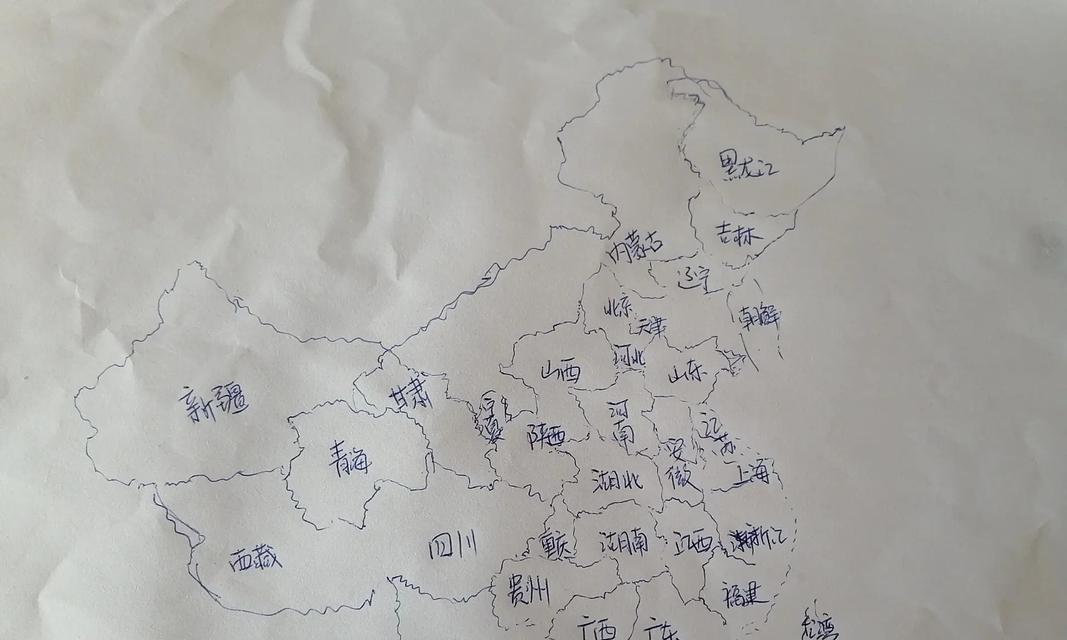 黑龙江
吉林
内蒙古
辽宁
北京
天津
朝鲜
河北
山西
山东
新疆
甘肃
宁夏
河
南
江
苏
陕西
青海
安
徽
湖北
上海
西藏
四川
重庆
湖南
江西
浙江
贵州
福建
广西
广东
台湾